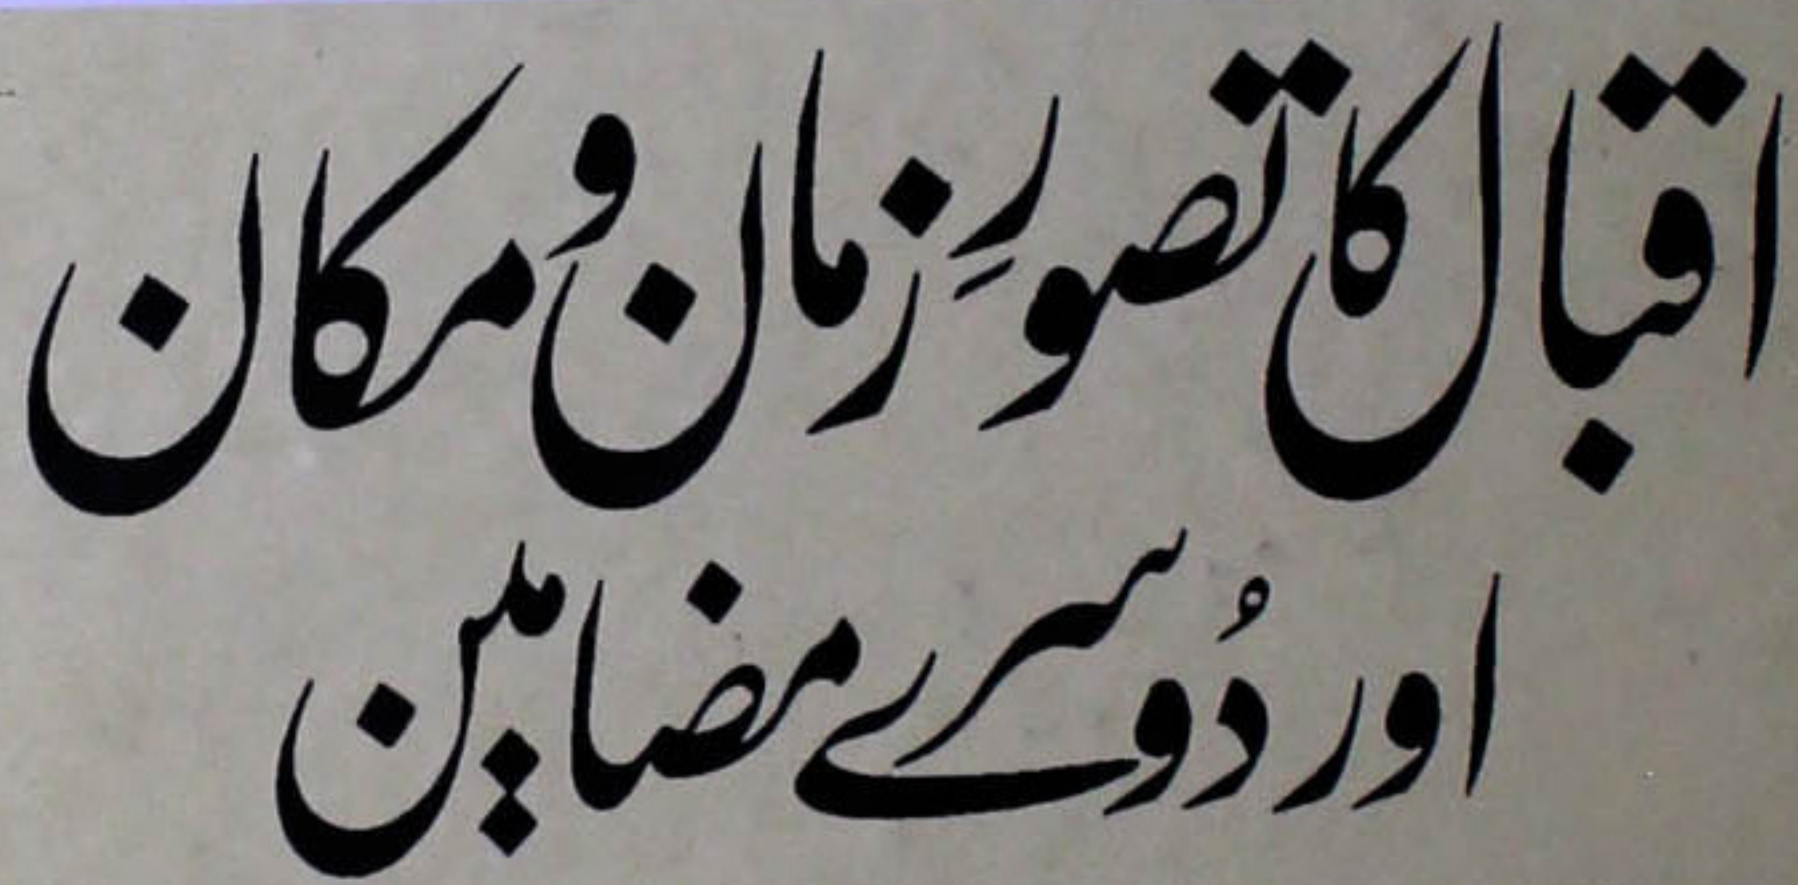 اقبال کا تصورِ زمان و مکان
اور دُوسرے مضامین